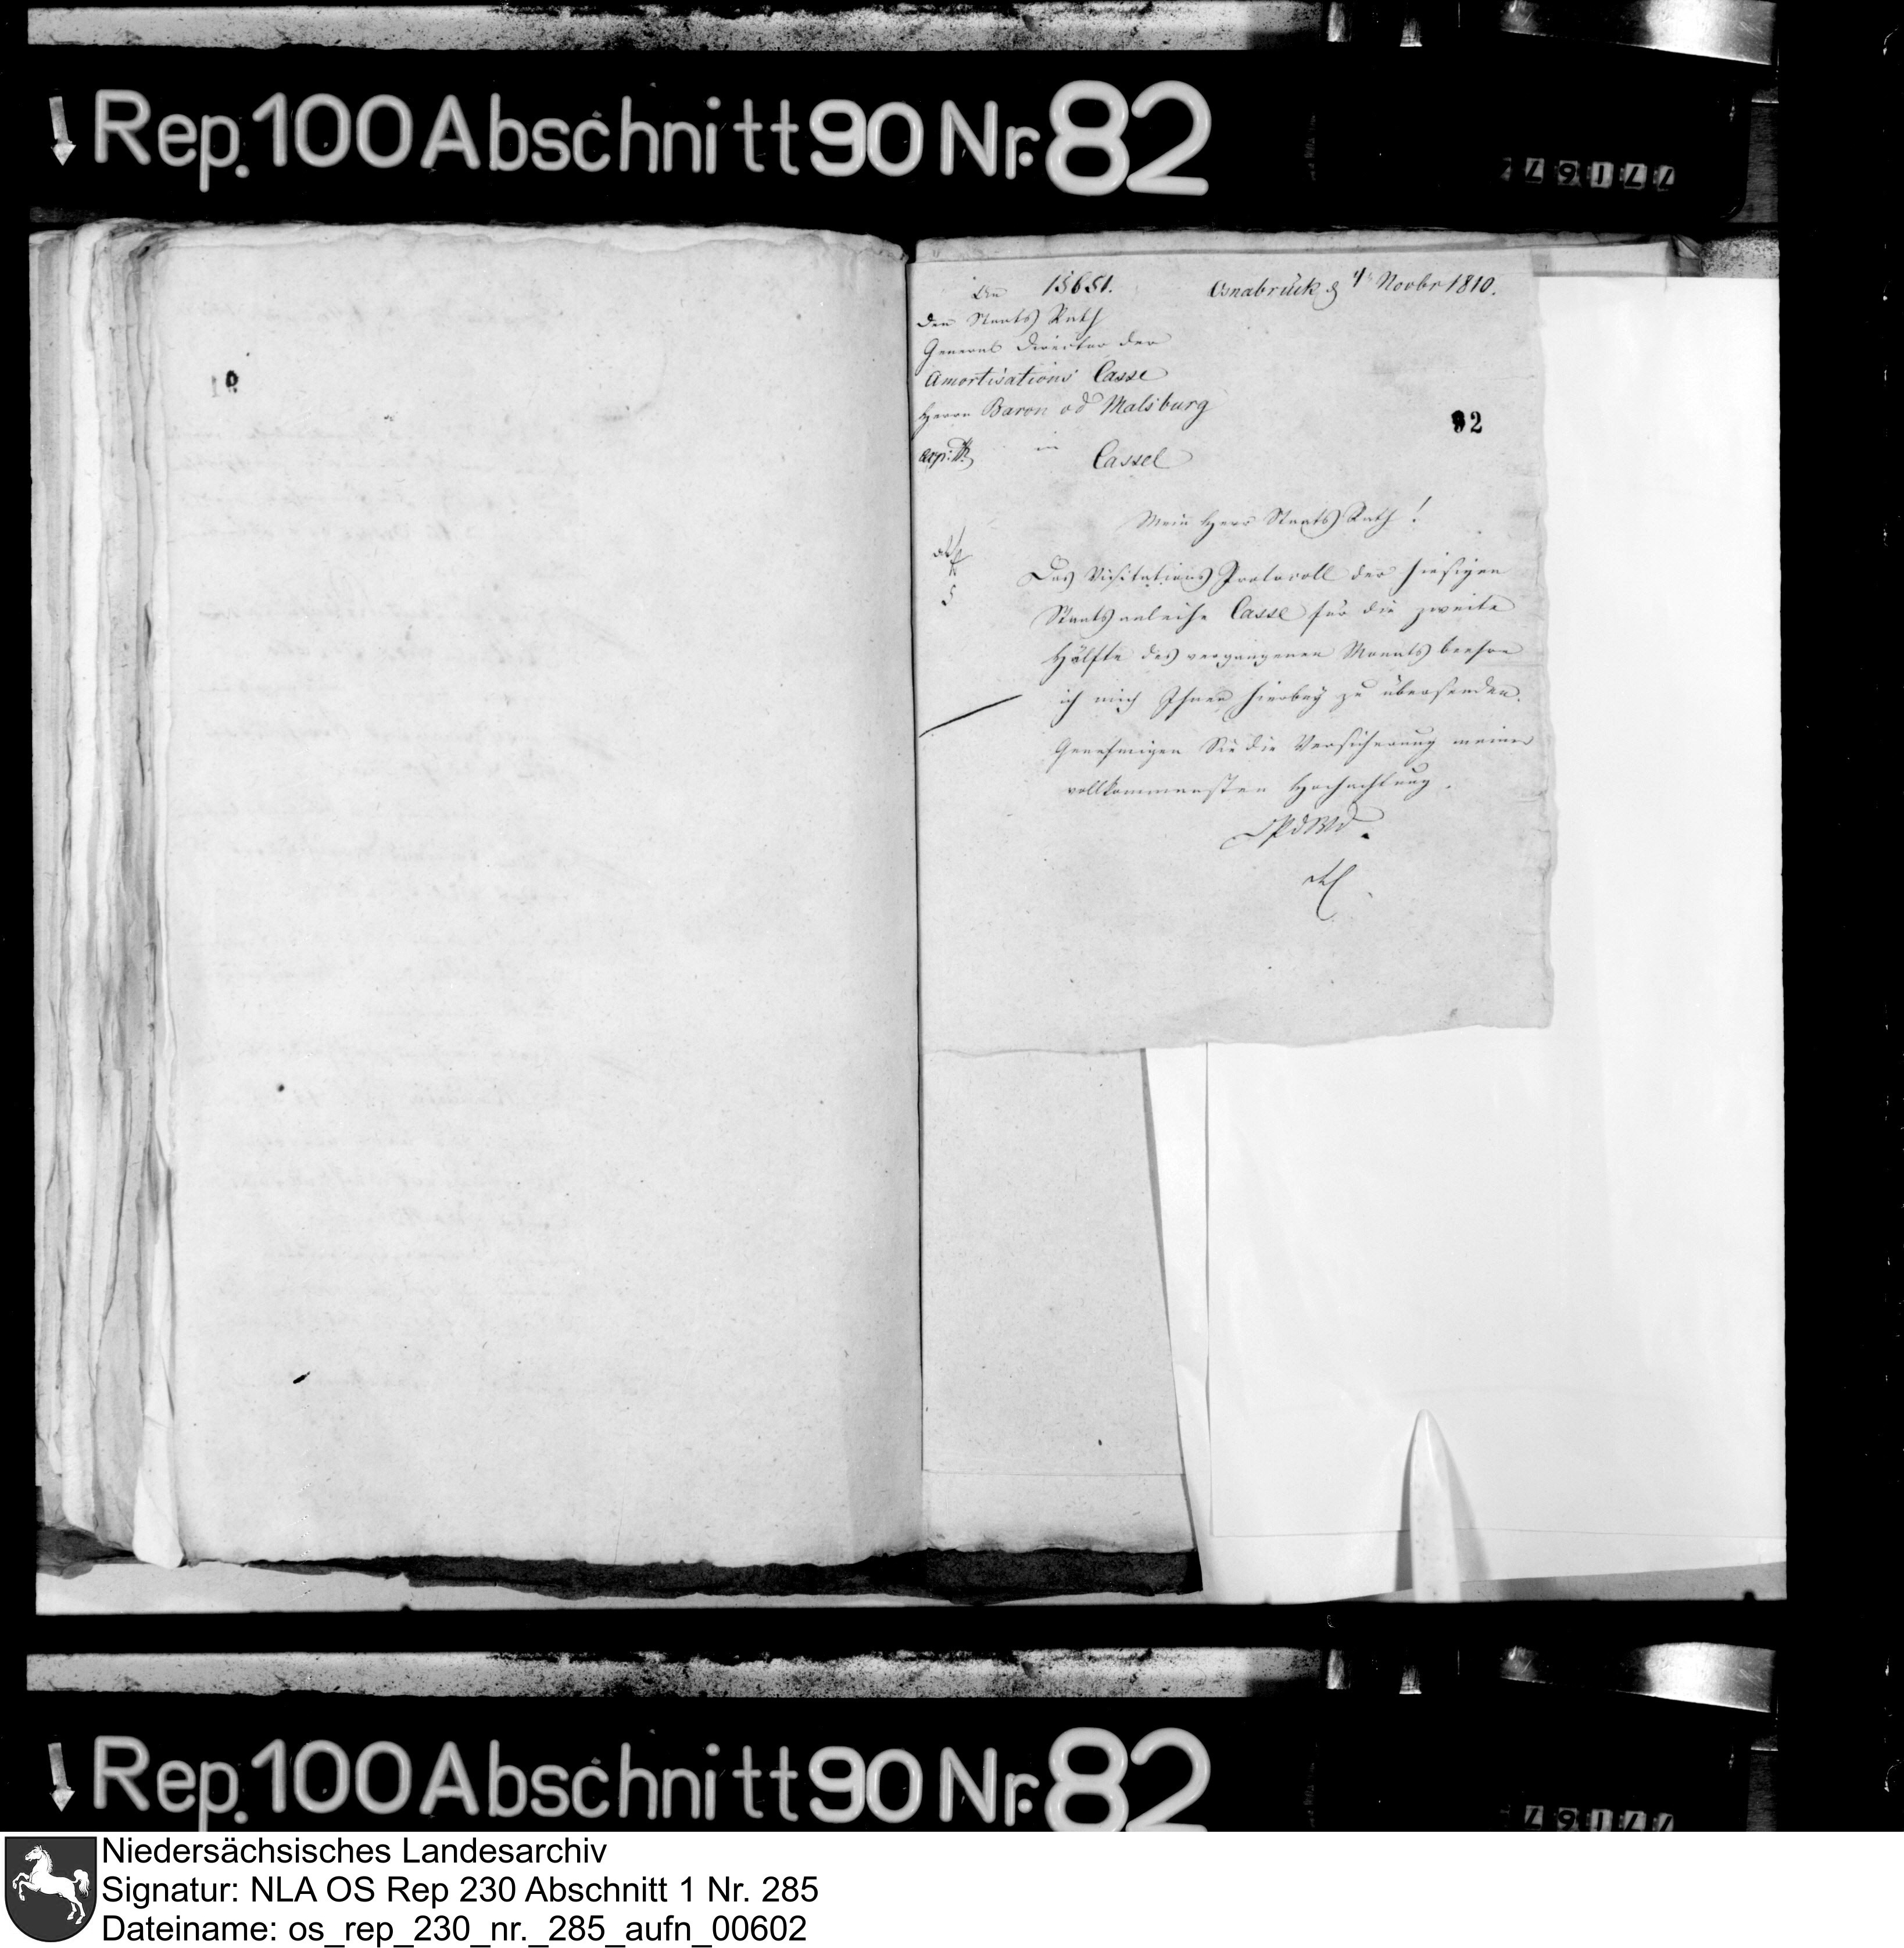 Rep. 100 Abschnitt 90 Nr. 82
An 15651. Osnabrück d 4 Novbr 1810.
den Staats Rath
General Director der
Amortisations Casse
Herrn Baron vd Malsburg
in
Cassel
82
Mein Herr Staats Rath!
Das Visitations Protocoll der hiesigen
Staatsanleihe Casse für die zweite
Hälfte des vergangenen Monats beehre
ich mich Ihnen hierbey zu übersenden.
Genehmigen Sie die Versicherung meiner
vollkommensten Hochachtung.
DPdWD.
Rep. 100 Abschnitt 90 Nr. 82
Niedersächsisches Landesarchiv
Signatur: NLA OS Rep 230 Abschnitt 1 Nr. 285
Dateiname: os_rep_230_nr._285_aufn_00602